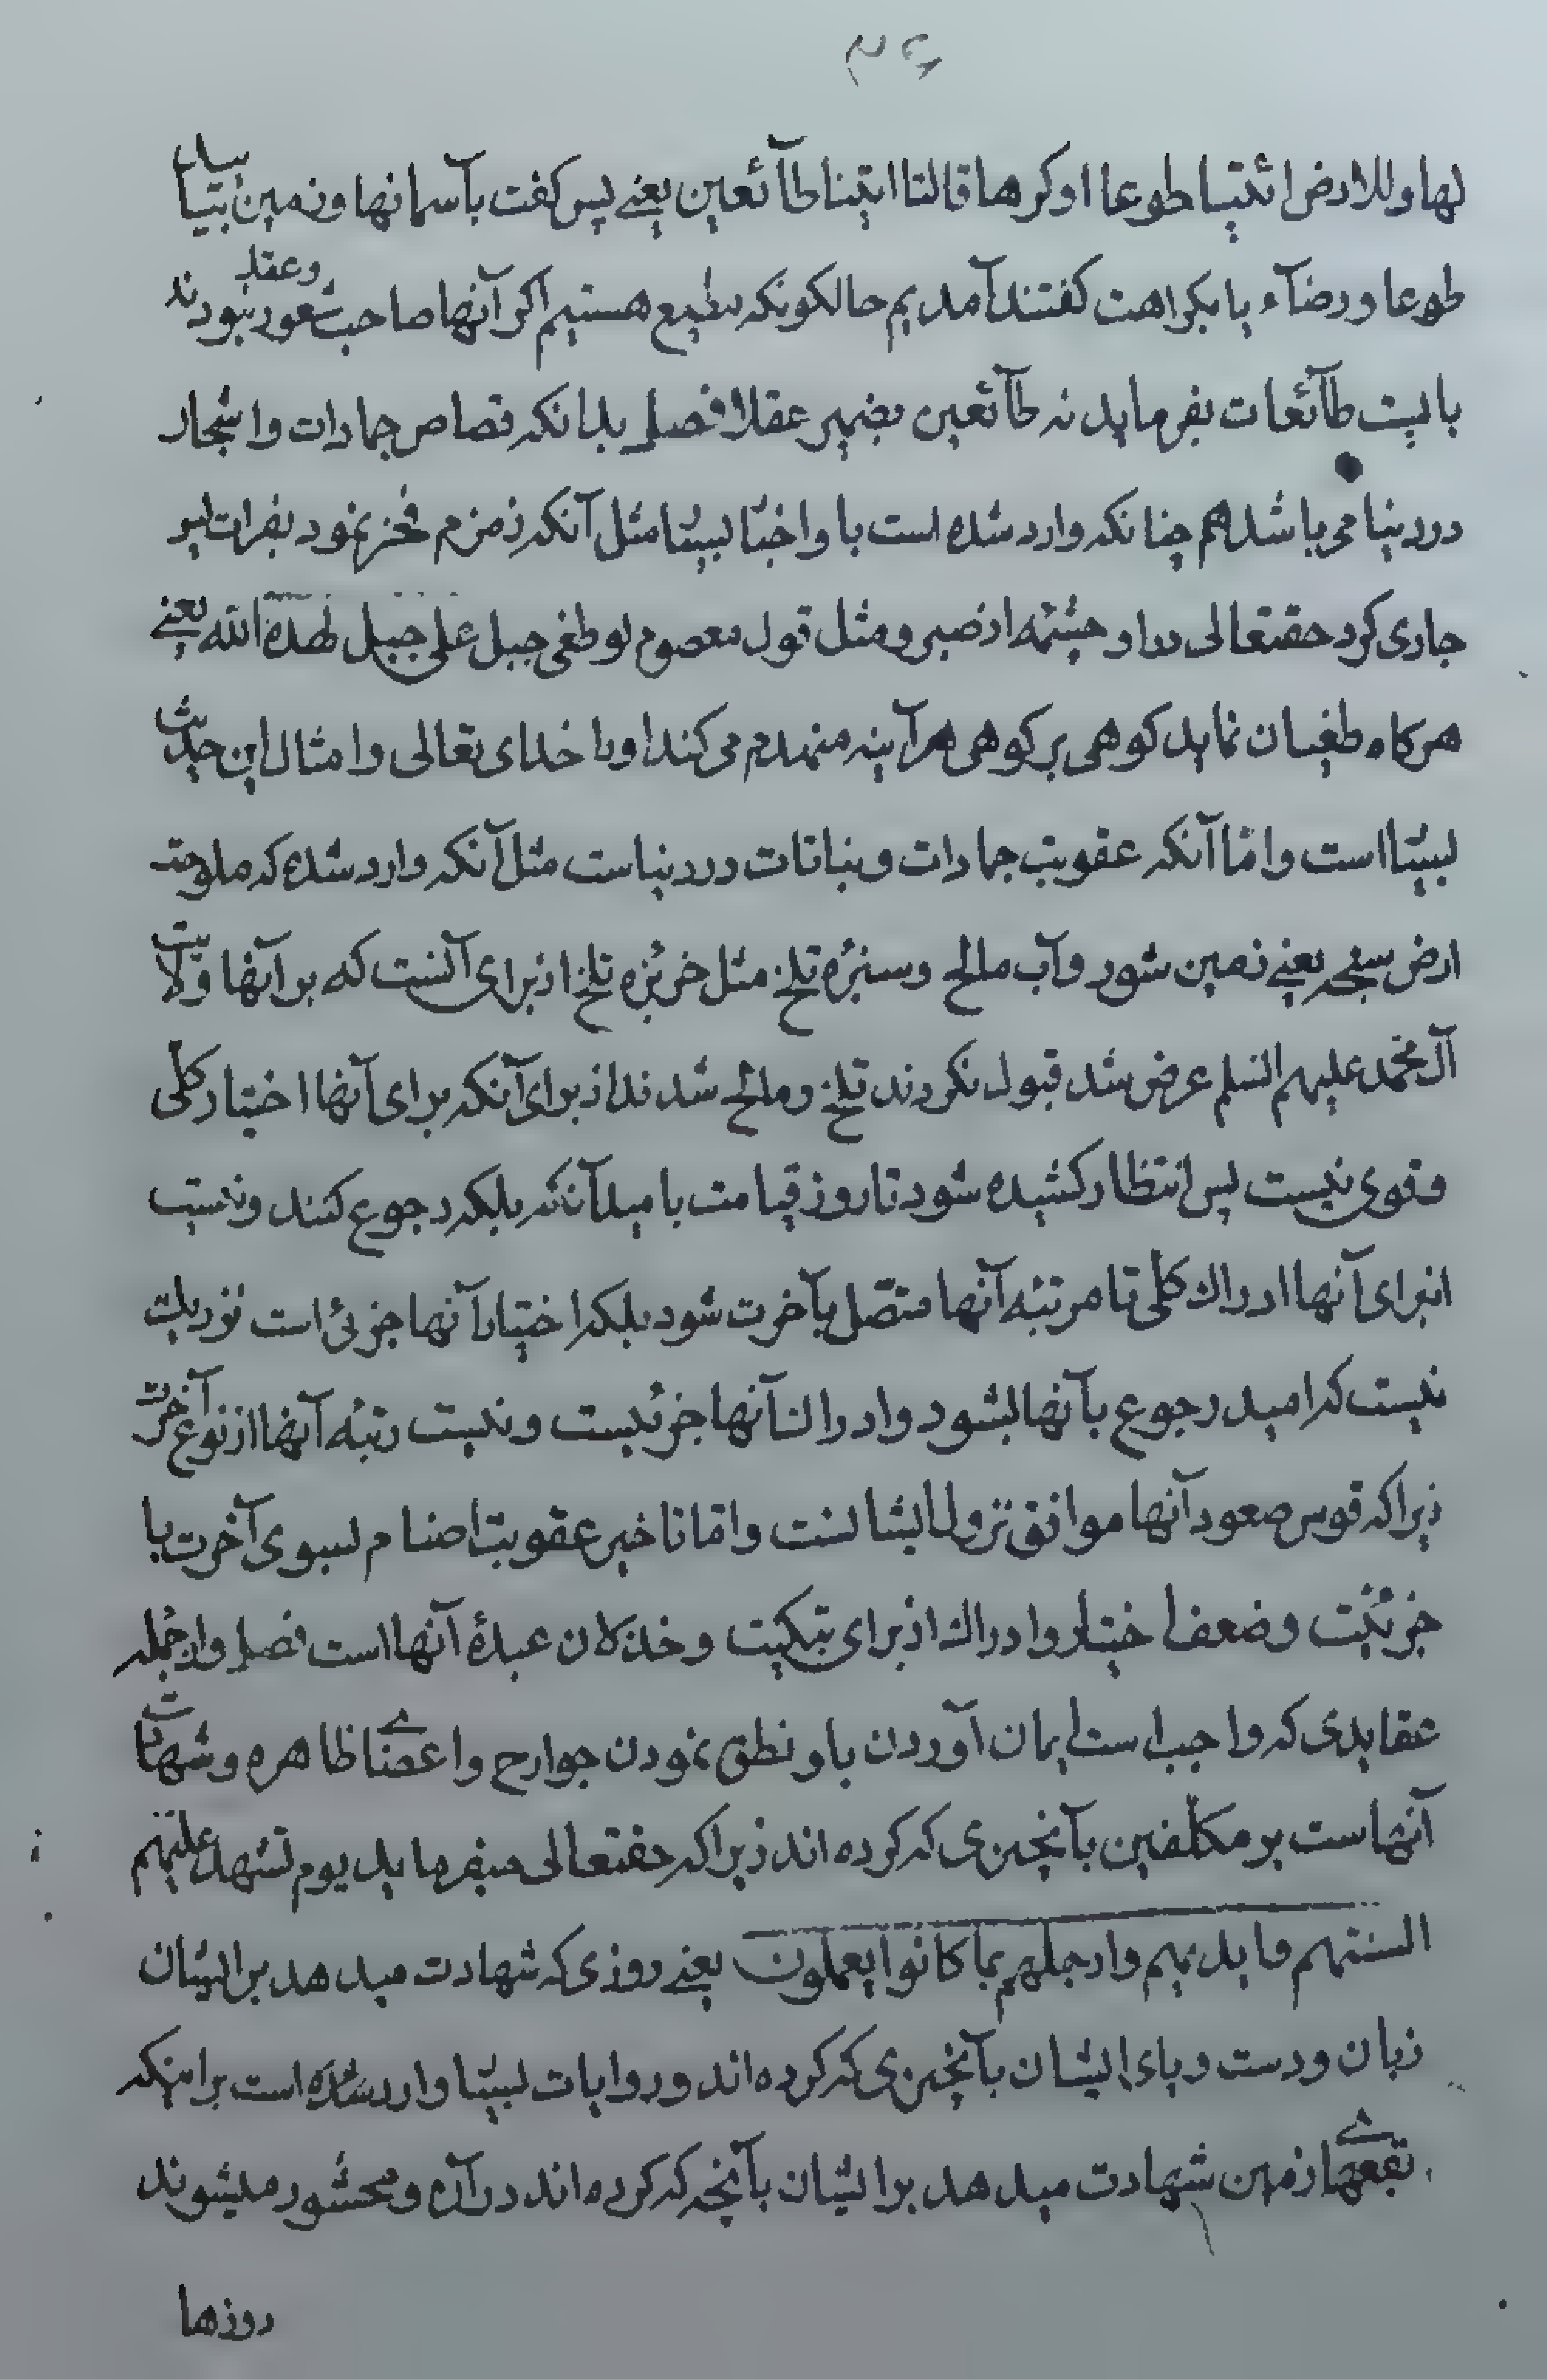 لها وللارض ائتیا طوعا او کرها قالتا اتینا طآئعین یعنے پس کفت بآسمانها و زمین بیائید
طوعا و رضآء یا بکراهت کفتند آمدیم حالکونکه مطیع هستیم اکر آنها صاحب شعور وعقل نبودند
بایست طآئعات بفرماید نه طآئعین بضمیر عقلا فصل بدانکه قصاص جمادات و اشجار
در دنیا می باشد هم چنانکه وارد شده است باو اخبار بسیار مثل آنکه زمزم فخر نمود بفرات پس
جاری کرد حقتعالی در او چشمه از صبر و مثل قول معصوم لو طغی جبل علی جبل لهده الله یعنے
هرکاه طغیان نماید کوهی بر کوهی هرآینه منهدم می کند اورا خدای تعالی و امثال این حدیث
بسیار است و امّا آنکه عقوبت جمادات و نباتات در دنیاست مثل آنکه وارد شده که ملوحت
ارض سبخه یعنے زمین شور و آب مالح و سبزهٔ تلخ مثل خربزه تلخ از برای آنست که بر آنها ولایت
آل محمد علیهم السلم عرض شد قبول نکردند تلخ و مالح شدند از برای آنکه برای آنها اختیار کلّی
و قوی نیست پس انتظار کشیده شود تا روز قیامت بامید آنکه بلکه رجوع کنند و نیست
از برای آنها ادراک کلّی تا مرتبه آنها متصّل بآخرت شود بلکه اختیار آنها جزئی است نزدیک
نیست که امید رجوع بآنها بشود و ادراک آنها جزئیست و نیست رتبهٔ آنها از نوع آخرت
زیرا که قوس صعود آنها موافق نزول ایشانست و امّا تاخیر عقوبت اصنام بسوی آخرت با
جزئیّت و ضعف اختیار و ادراک از برای تبکیت و خذلان عبدهٔ آنها است فصل و از جمله
عقایدی که واجب است ایمان آوردن باو نطق نمودن جوارح و اعضای ظاهره و شهادت
آنهاست بر مکلّفین بآنچیزی که کرده اند زیرا که حقتعالی میفرماید یوم تشهد علیهم
السنتهم و ایدیهم و ارجلهم بما کانوا یعملون یعنے روزی که شهادت میدهد بر ایشان
زبان و دست و پای ایشان بآنچیزی که کرده اند و روایات بسیار وارد شده است بر اینکه
بقعهای زمین شهادت میدهد بر ایشان بآنچه که کرده اند در آن و محشور میشوند
روزها